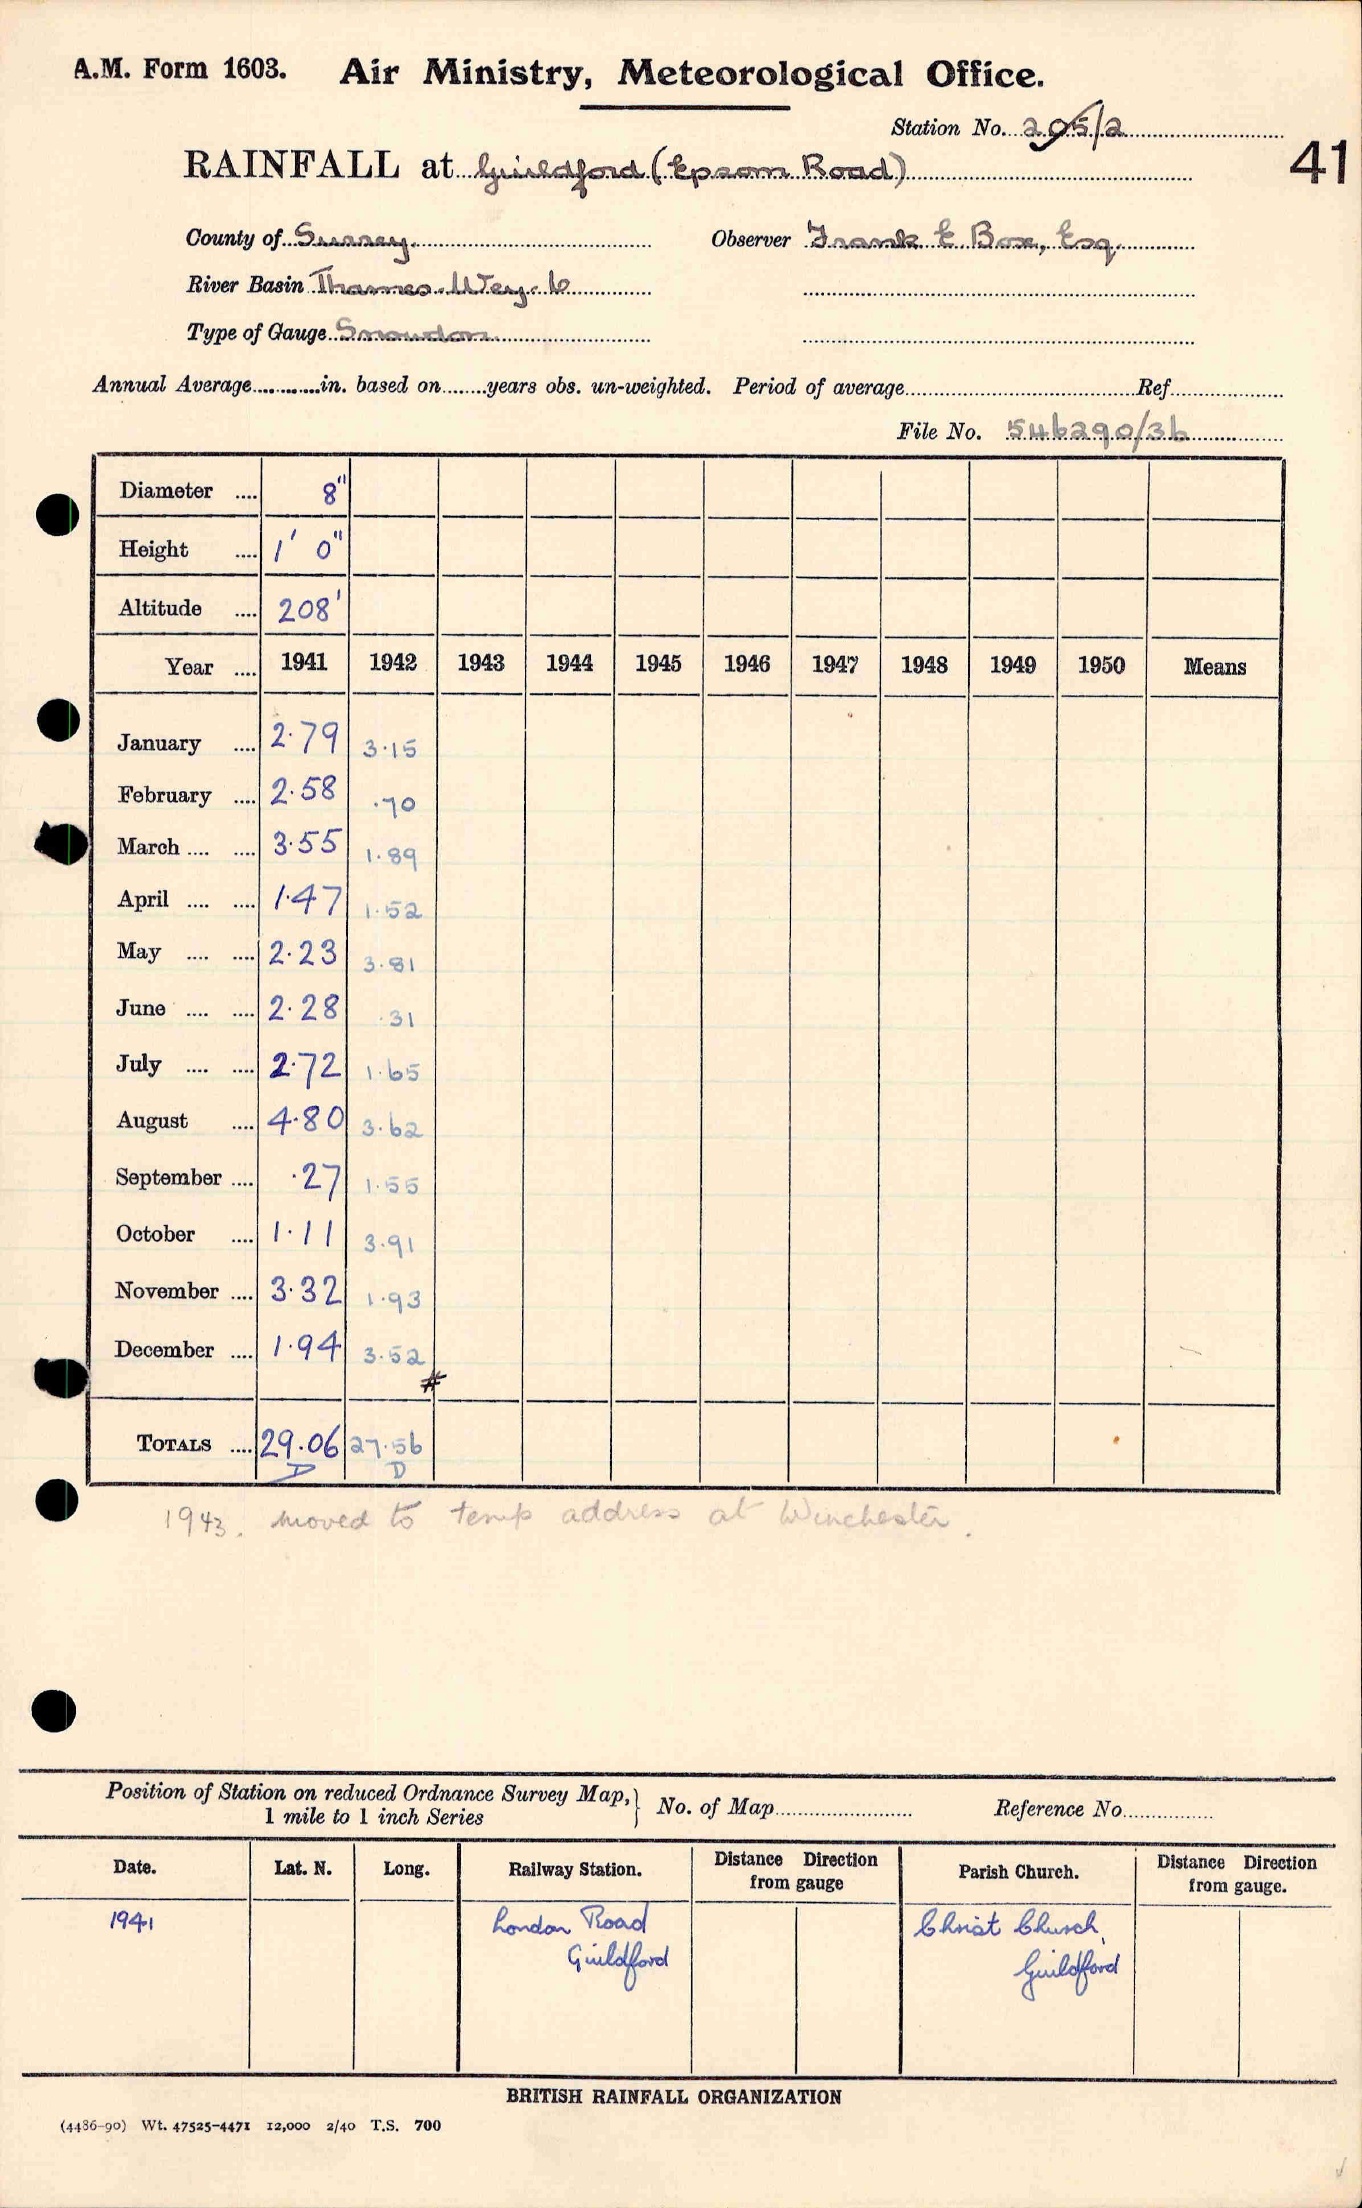 A.M. Form 1603. Air Ministry, Meteorological Office.
Station No. 205/2
41
RAINFALL at Guildford (Epsom Road)
County of Surrey. Observer Frank E. Box, Esq.
River Basin Thames. Wey. 6
Type of Gauge Snowdon.
Annual Average............in. based on........years obs. un-weighted. Period of average........Ref........
File No. 546290/36
Diameter .... 8"
Height .... 1' 0"
Altitude .... 208'
Year .... 1941 1942 1943 1944 1945 1946 1947 1948 1949 1950 Means
January .... 2.79 3.15
February .... 2.58 .70
March .... .... 3.55 1.89
April .... .... 1.47 1.52
May .... .... 2.23 3.81
June .... .... 2.28 .31
July .... .... 2.72 1.65
August .... 4.80 3.62
September .... .27 1.55
October .... 1.11 3.91
November .... 3.32 1.93
December .... 1.94 3.52
#
TOTALS .... 29.06 27.56
D D
1943. Moved to temp address at Winchester.
Position of Station on reduced Ordnance Survey Map, } No. of Map........ Reference No........
1 mile to 1 inch Series
Date. Lat. N. Long. Railway Station. Distance Direction from gauge Parish Church. Distance Direction from gauge.
1941 London Road Christ Church,
Guildford Guildford
BRITISH RAINFALL ORGANIZATION
(4486-90) Wt. 47525-4471 12,000 2/40 T.S. 700